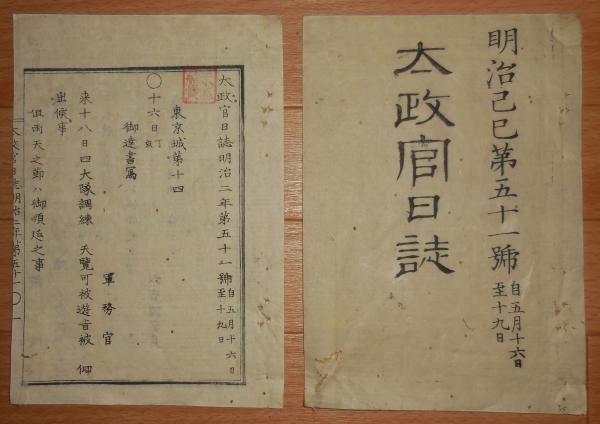 明治己巳第五十一號 自五月十六日至十九日
太政官日誌
太政官日誌明治二年第五十一號 自五月十六日至十九日
東京城第十四
〇十六日丁亥
御達書寫
軍務官
来十八日四大隊調練 天覽可被遊旨被 仰
出候事
但雨天之節ハ御順延之事
太政官日誌明治二年第五十一 〇 一